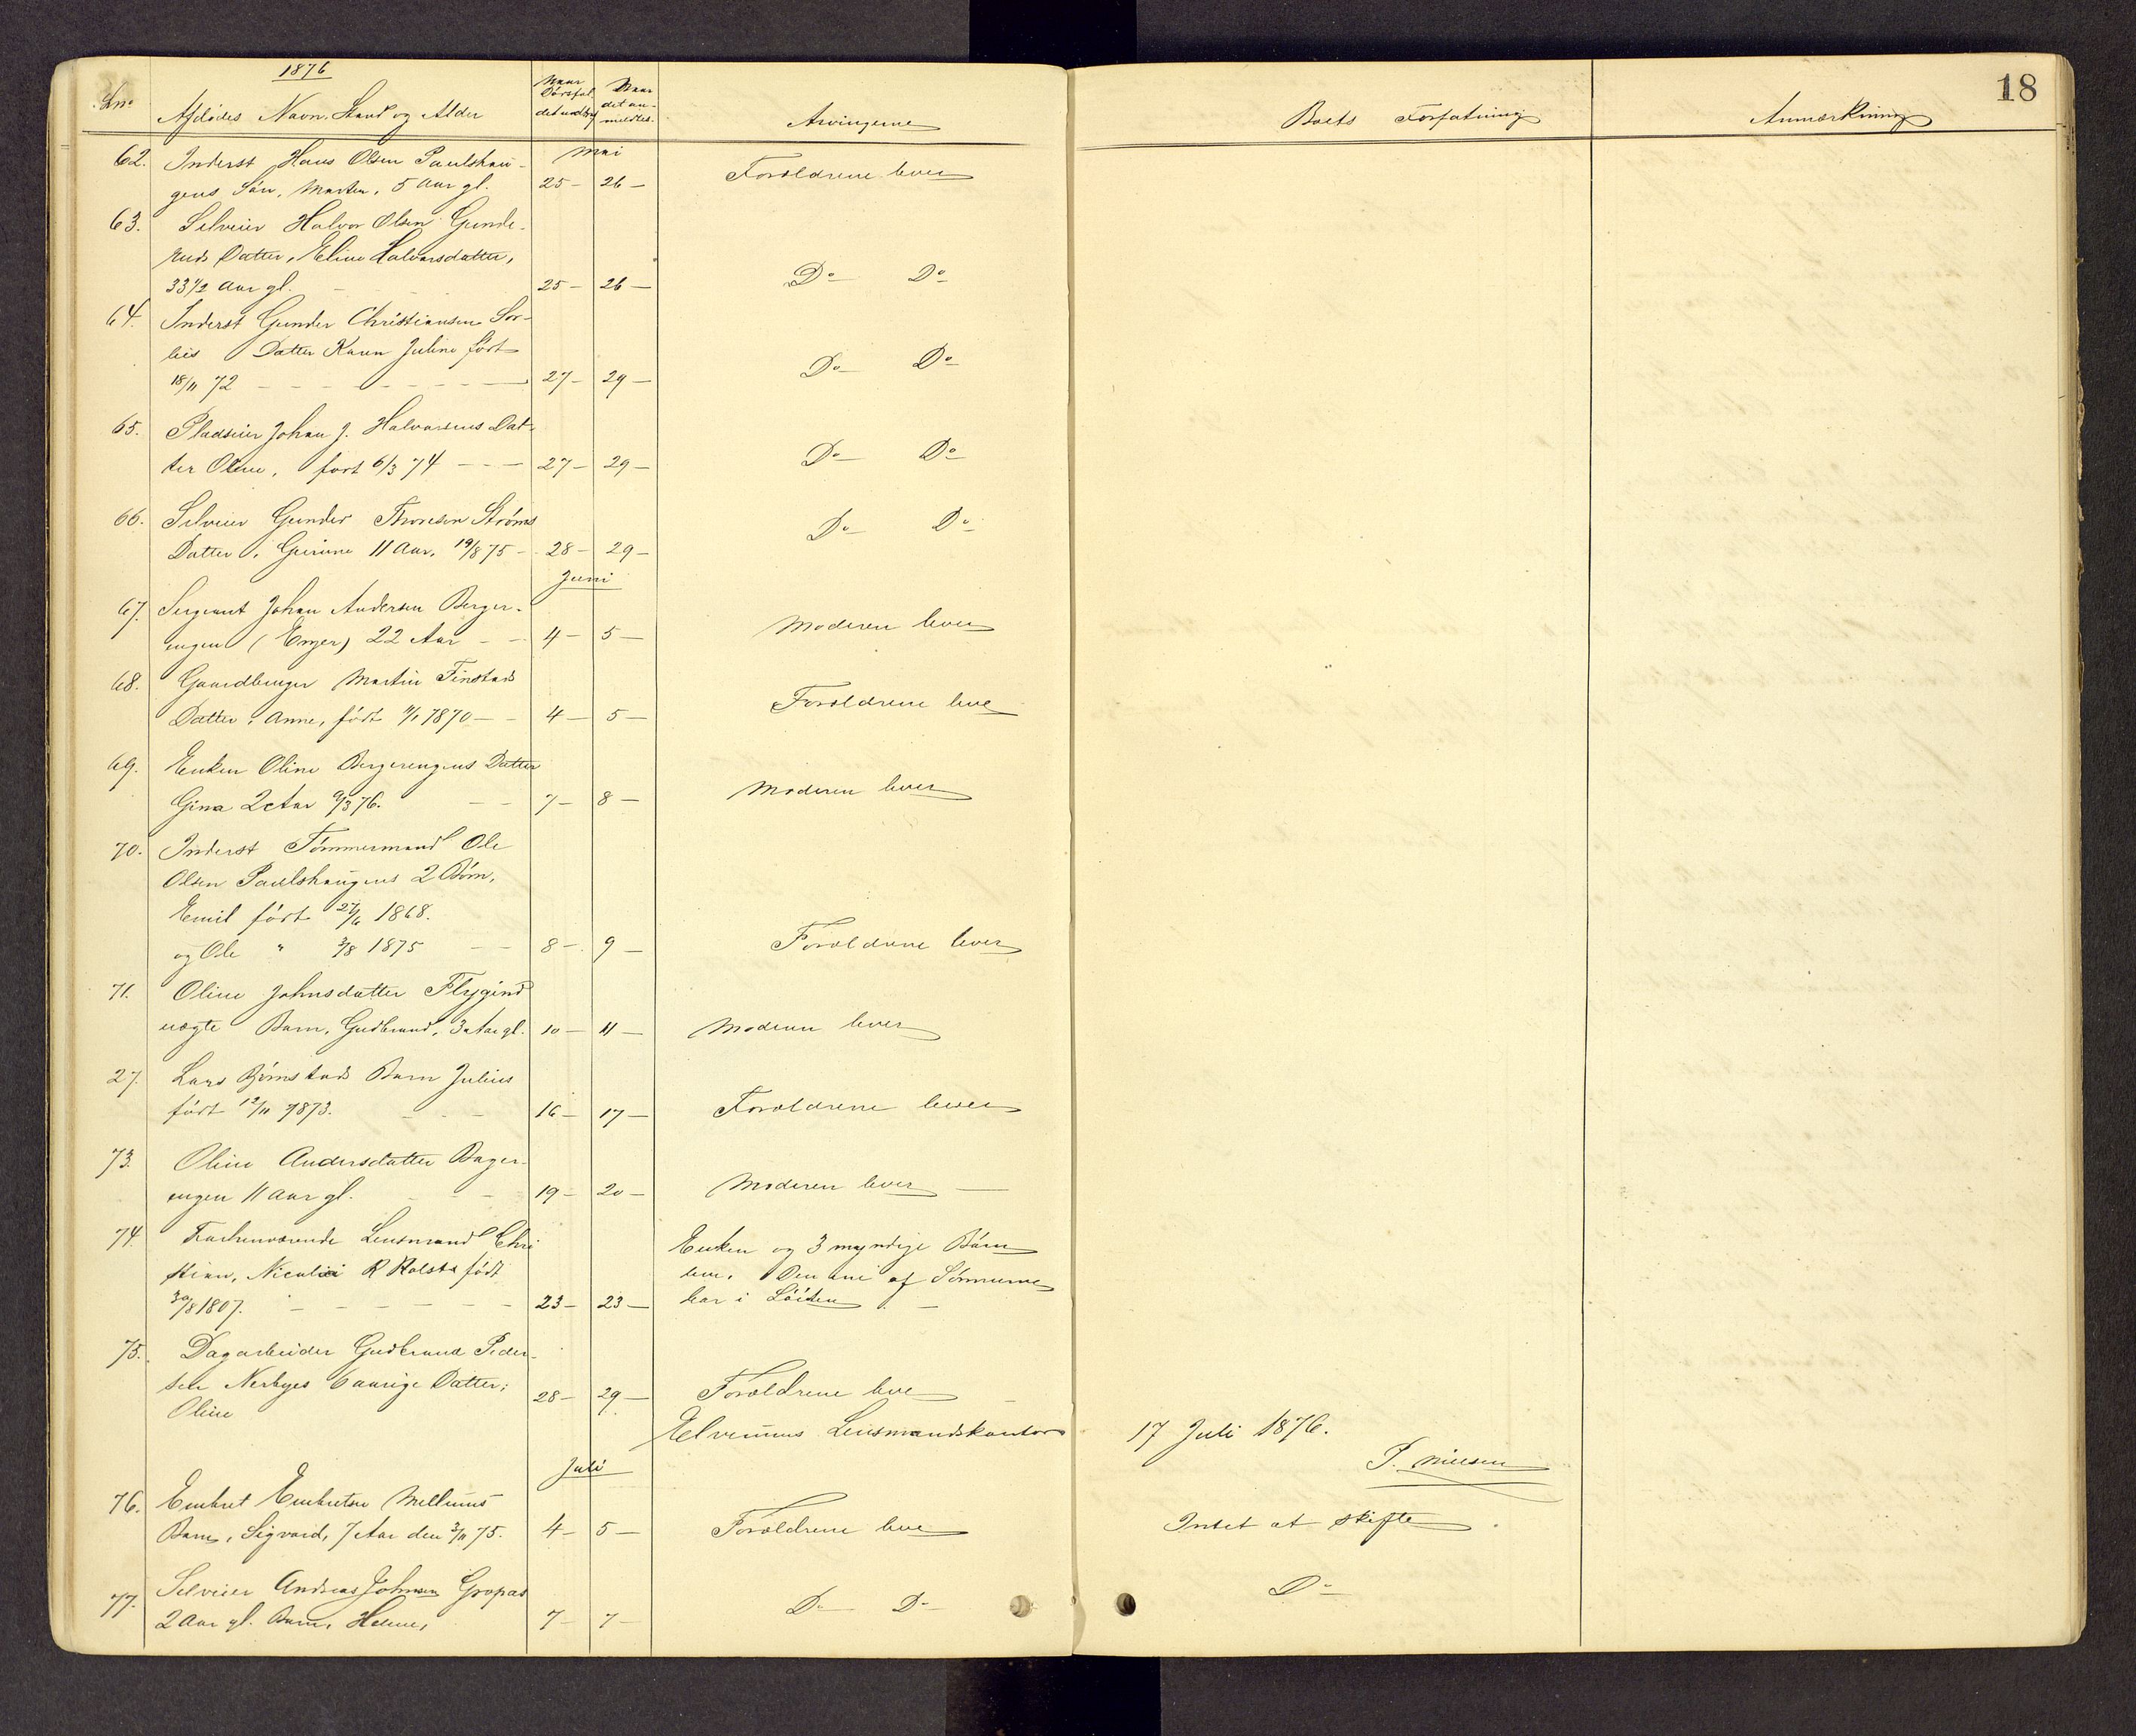 1876
18
Lno
Afdødes Navn, Stand og Alder
Naar Dødsfaldet indtraf
Naar det anmeldtes
Arvingerne
Boets Forfatning
Anmærkning
Mai
62. Inderst Hans Olsen Paulshau-
gens Søn, Martin, 5 Aar gl. 25 – 26 – Forældrene lever
63. Selveier Halvor Olsen Gunde-
ruds Datter, Eline Halvorsdatter,
33 1/2 Aar gl. 25 – 26 – Do Do
64. Inderst Gunder Christiansen Sor-
lies Datter Karen Juline født
18/11 72 27 – 29 – Do Do
65. Pladseier Johan J. Halvorsens Dat-
ter Oline, født 6/3 74 27 – 29 – Do Do
66. Selveier Gunder Thoresen Strøms
Datter, Gurine 11 Aar, 19/8 75 – 28 – 29 – Do Do
Juni
67. Sergeant Johan Andersen Berger-
engen (Enger) 22 Aar 4 – 5 – Moderen lever
68. Gaardbruger Martin Finstads
Datter, Anne, født 11/1 1870 4 – 5 – Forældrene leve
69. Enken Oline Bergerengens Datter
Gina 2 Aar 9/3 76. 7 – 8 – Moderen lever
70. Inderst Tømmermand Ole
Olsen Paulshaugens 2 Børn,
Emil født 27/6 1868.
og Ole " 3/8 1875 8 – 9 – Forældrene lever
71. Oline Johnsdatter Flygind
uægte Barn, Gudbrand, 3 Aar gl. 10 – 11 – Moderen lever
27. Lars Bjørnstads Barn Julius
født 12/11 1873. 16 – 17 – Forældrene lever
73. Oline Andersdatter Berger-
engen 11 Aar gl. 19 – 20 – Moderen lever
74. Forhenværende Lensmand Chri
stian, Nicolai R Holste født
30/8 1807. 23 – 23 –
Enken og 3 myndige Børn
leve. Den ene af Sønnerne
bor i Løiten
75. Dagarbeider Gudbrand Peder-
sen Nerbyes 6 aarige Datter;
Oline 28 – 29 – Forældrene leve
Elverums Lensmandskontor 17 Juli 1876.
P. Nielsen
Juli
76. Embret Embretsen Mellums
Barn, Sigvard, 7 Aar den 3/11 75. 4 – 5 – Forældrene leve Intet at skifte
77. Selveier Andreas Johnsen Gropas
2 Aar gl. Barn, Helene, 7 – 7 – Do Do Do